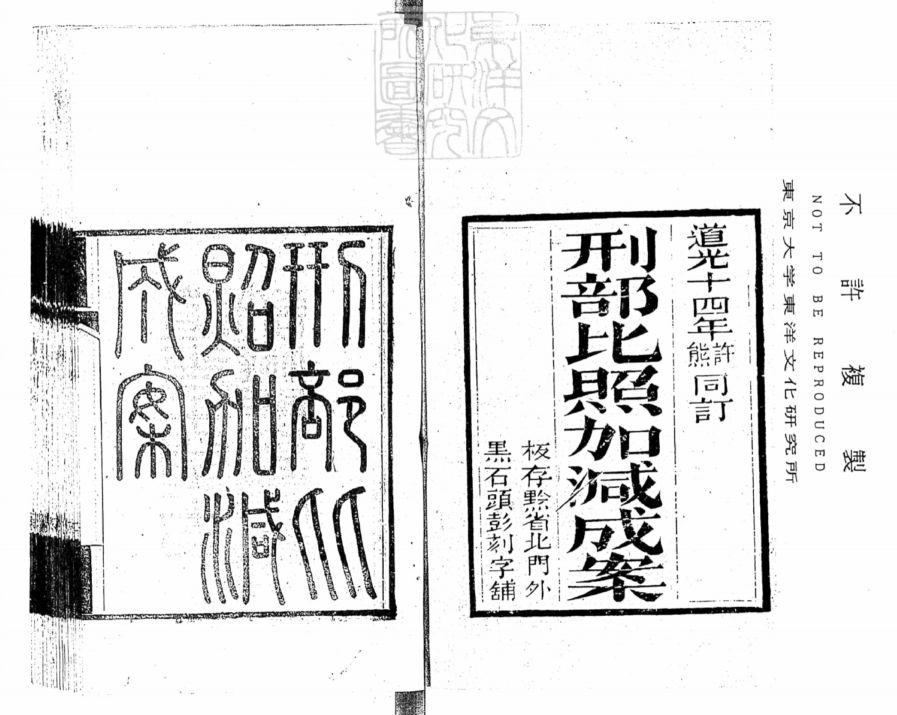 不許複製
NOT TO BE REPRODUCED
東京大学東洋文化研究所
道光十四年許熊同訂
刑部比照加減成案
板存黔省北門外
黒石頭彭刻字舖
東洋文
化研究
所圖書
刑部比
照加減
成案